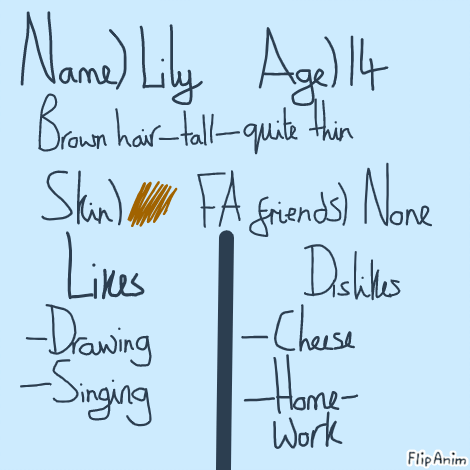 Name) Lily Age) 14
Brown hair-tall-quite thin
Skin) FA friends) None
Likes Dislikes
-Drawing -Cheese
-Singing -Home-
work
FlipAnim